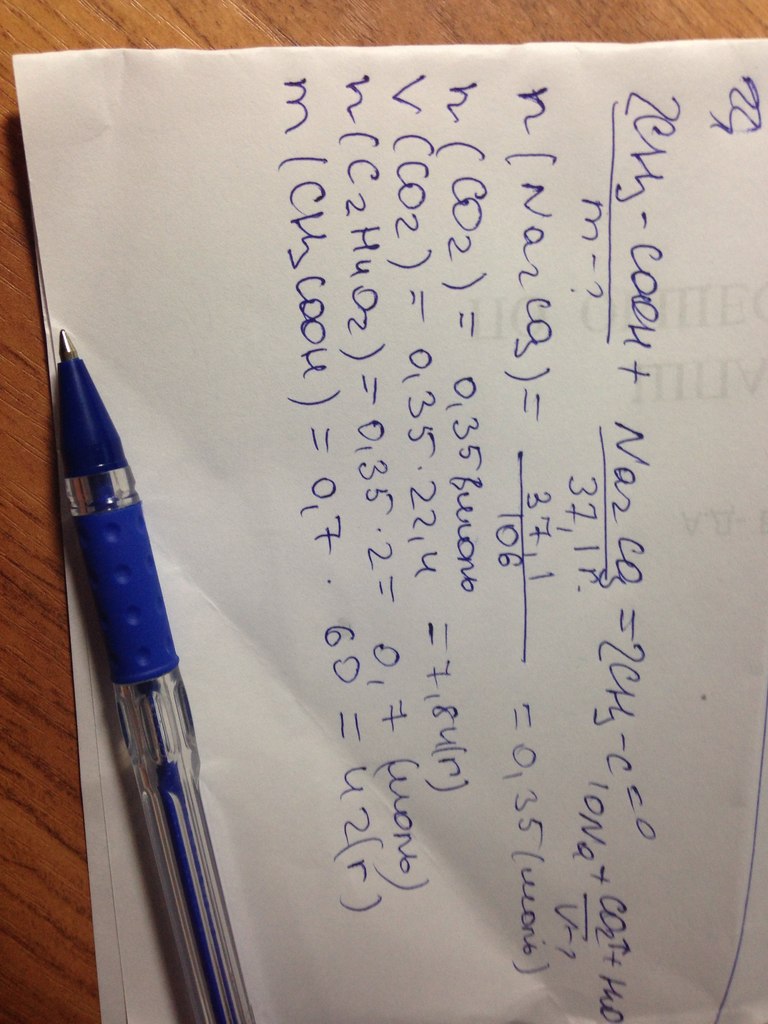 3)
2CH3-COOH + Na2CO3 = 2CH3-C=O
m-? 37,1г. \ONa + CO2↑ + H2O
V-?
n(Na2CO3) = 37,1/106 = 0,35 (моль)
n(CO2) = 0,35 моль
V(CO2) = 0,35·22,4 = 7,84(г)
n(C2H4O2) = 0,35·2 = 0,7 (моль)
m(CH3COOH) = 0,7·60 = 42(г)